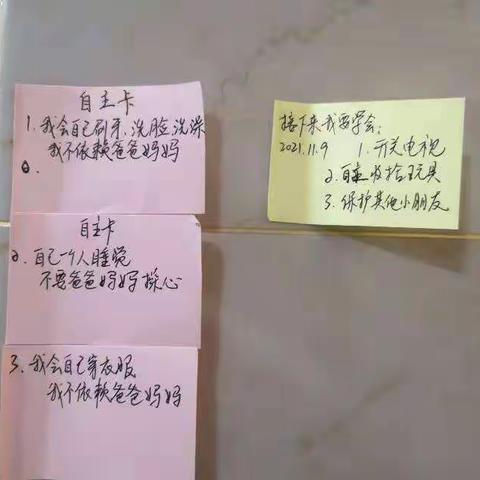 自主卡
1、我会自己刷牙、洗脸、洗澡
我不依赖爸爸妈妈
自主卡
2、自己一个人睡觉
不要爸爸妈妈操心
3、我会自己穿衣服
我不依赖爸爸妈妈
接下来我要学会:
2021.11.9 1.开关电视
2.自主收拾玩具
3.保护其他小朋友